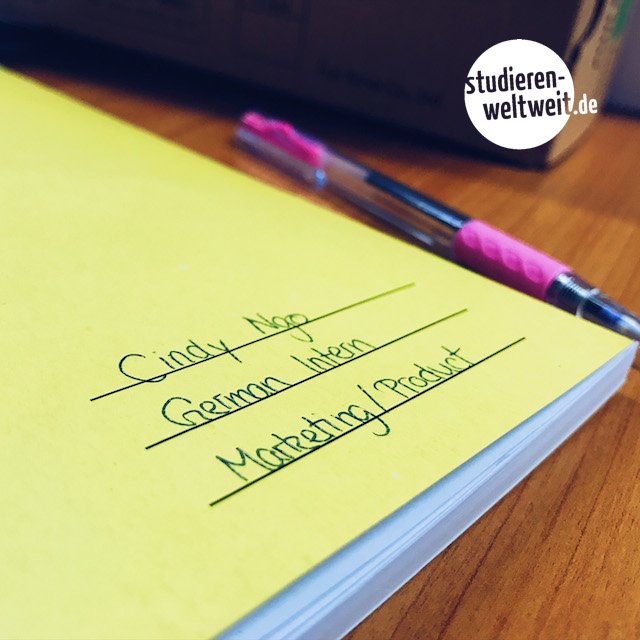 studieren-
weltweit.de
Cindy Ngo
German Intern
Marketing/Product